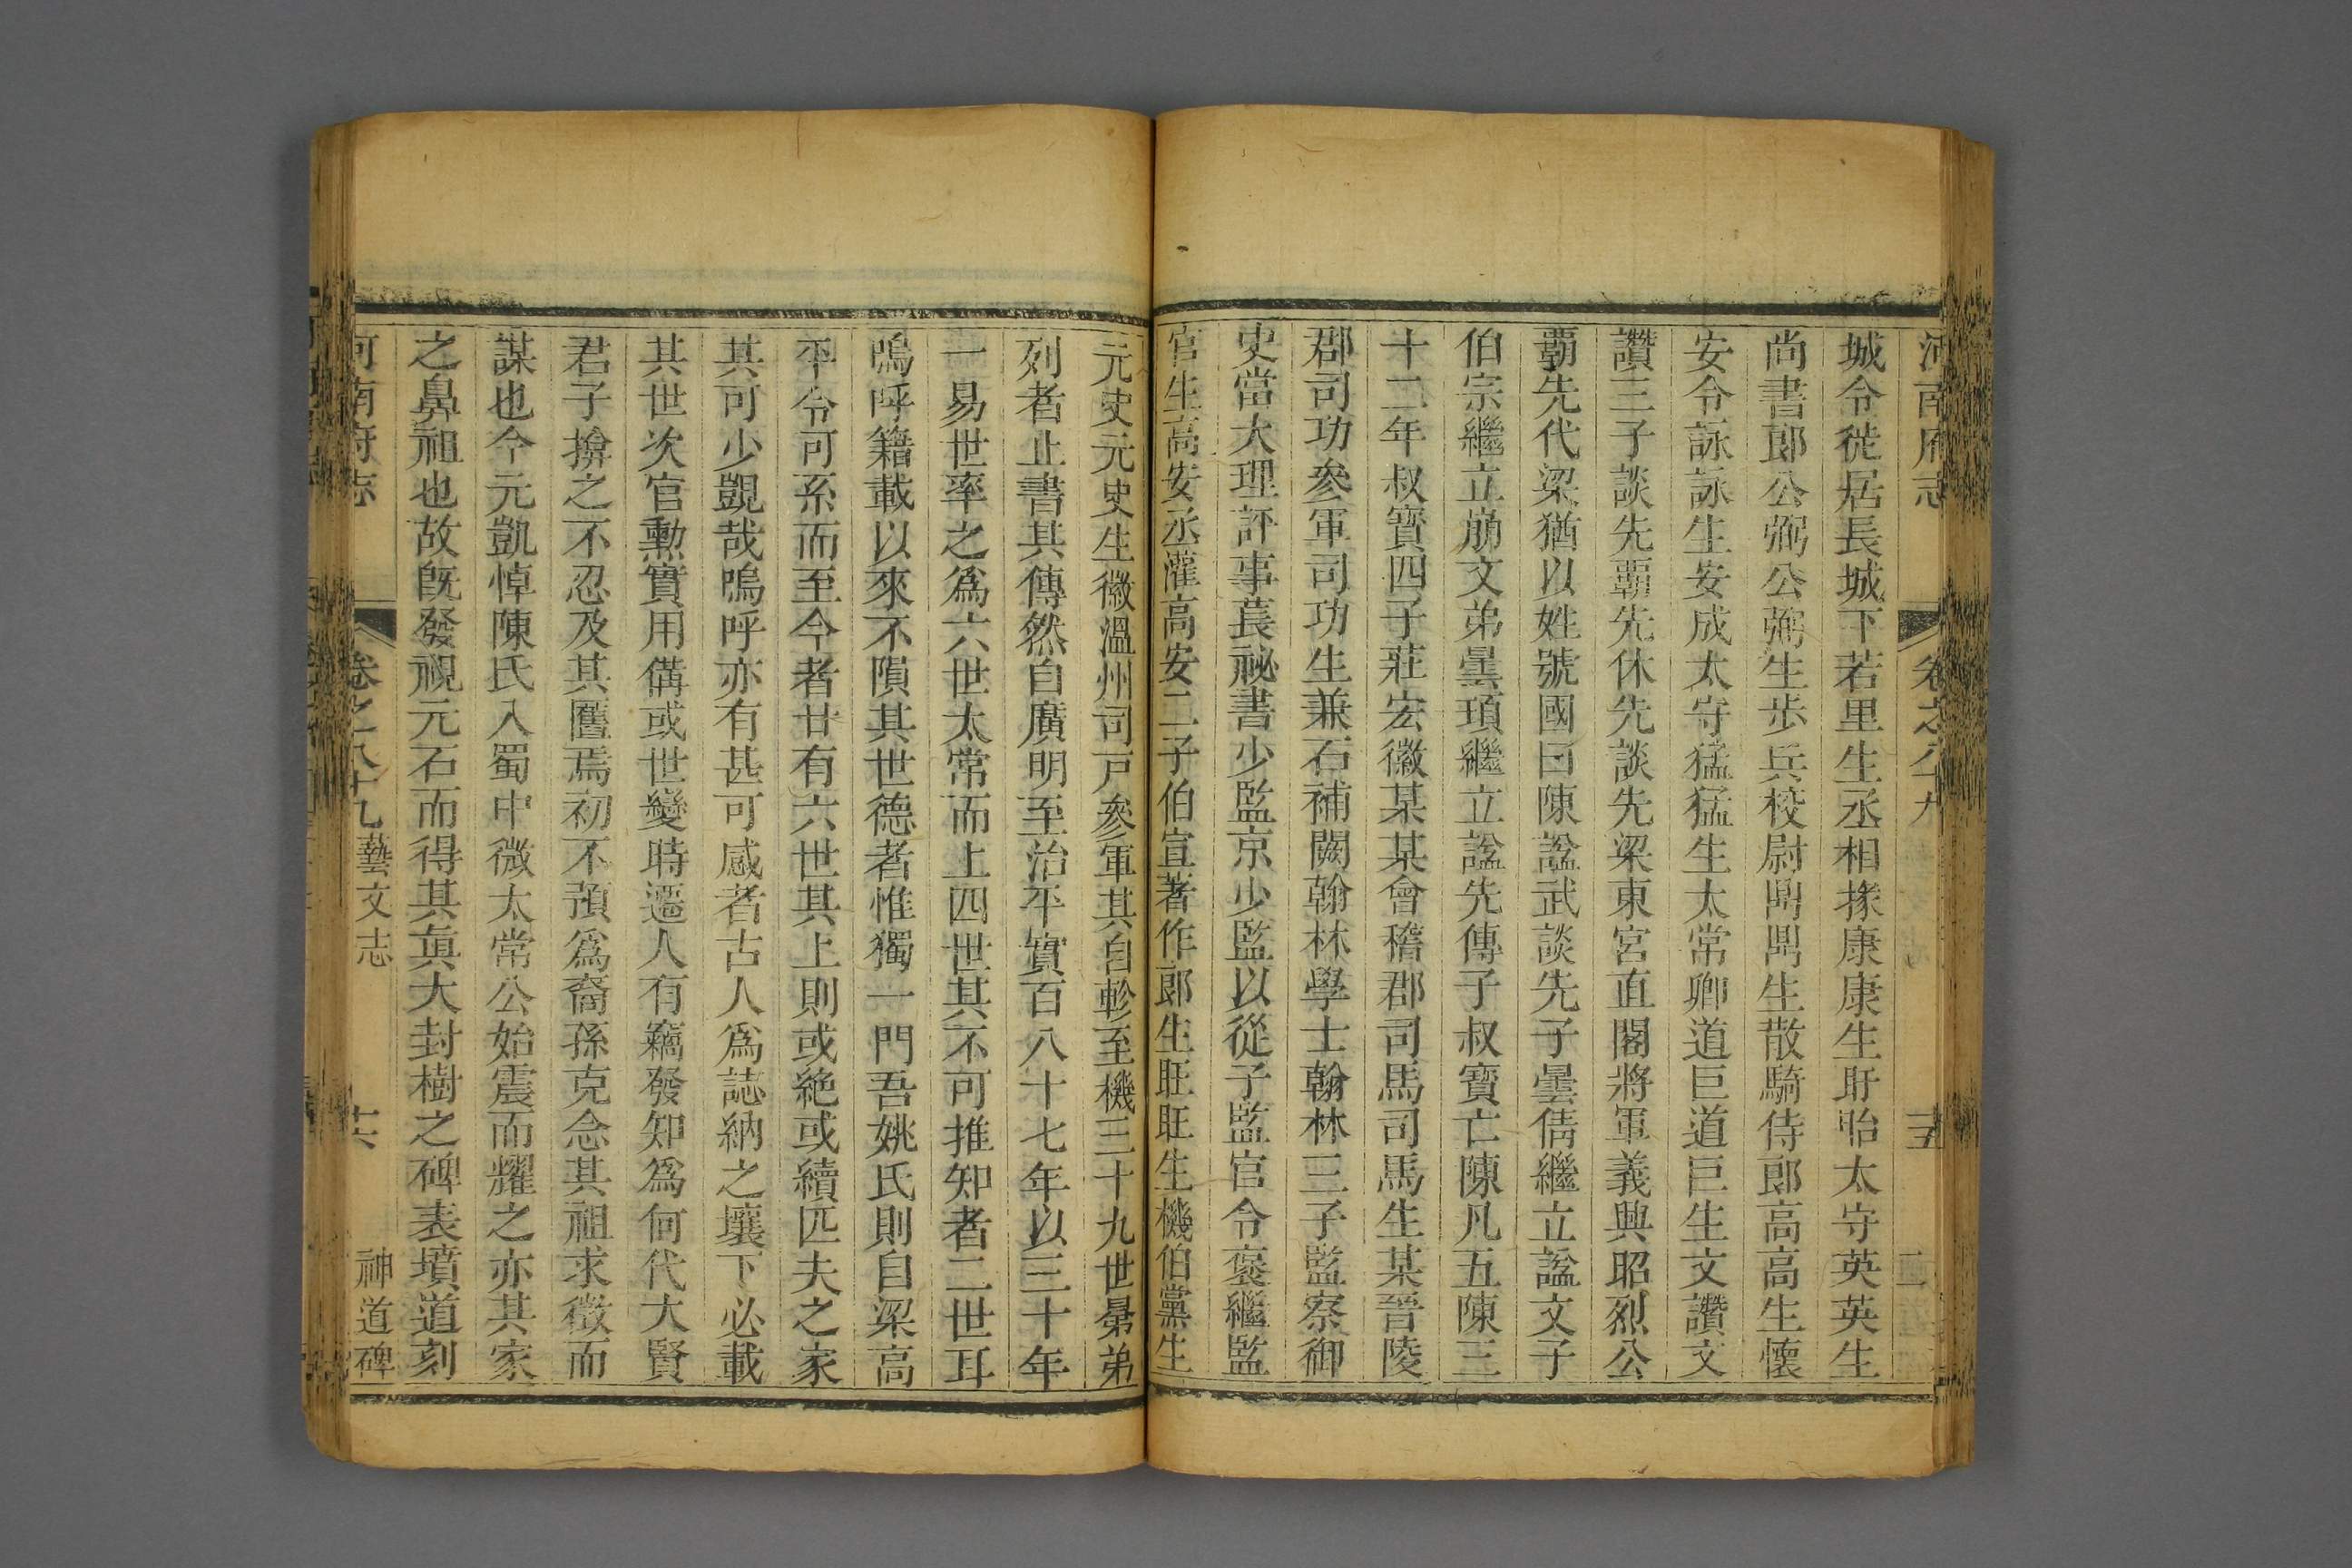 河南府志 卷之八十九 十五
城令徙居長城下若里生丞相掾康康生盱眙太守英英生
尚書郎公弼公弼生步兵校尉鼎鼎生散騎侍郎高高生懷
安令詠詠生安成太守猛猛生太常卿道巨道巨生文讚文
讚三子談先霸先休先談先梁東宮直閣將軍義興昭烈公
霸先代梁猶以姓號國曰陳諡武談先子曇蒨繼立諡文子
伯宗繼立崩文弟曇頊繼立諡先傳子叔寶亡陳凡五陳三
十二年叔寶四子莊宏徽某某會稽郡司馬司馬生某晉陵
郡司功參軍司功生兼石補闕翰林學士翰林三子監察御
史當大理評事萇祕書少監京少監以從子監官令褒繼監
官生高安丞灌高安二子伯宣著作郎生旺旺生機伯黨生
元史元史生徽溫州司戸參軍其自軫至機三十九世曑弟
列者止書其傳然自廣明至治平實百八十七年以三十年
一易世率之爲六世太常而上四世其不可推知者二世耳
嗚呼籍載以來不隕其世德者惟獨一門吾姚氏則自梁高
平令可系而至今者廿有六世其上則或絶或續匹夫之家
其可少覬哉嗚呼亦有甚可感者古人爲誌納之壤下必載
其世次官勲實用備或世變時遷人有竊發知爲何代大賢
君子揜之不忍及其匶焉初不蕷爲裔孫克念其祖求徵而
謀也今元凱悼陳氏入蜀中微太常公始震而耀之亦其家
之鼻祖也故旣發視元石而得其眞大封樹之碑表墳道刻
河南府志 卷之八十九 藝文志 十六 神道碑